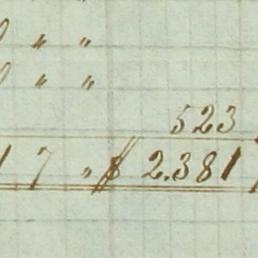 " "
" "
523
1 7 " $ 2.381